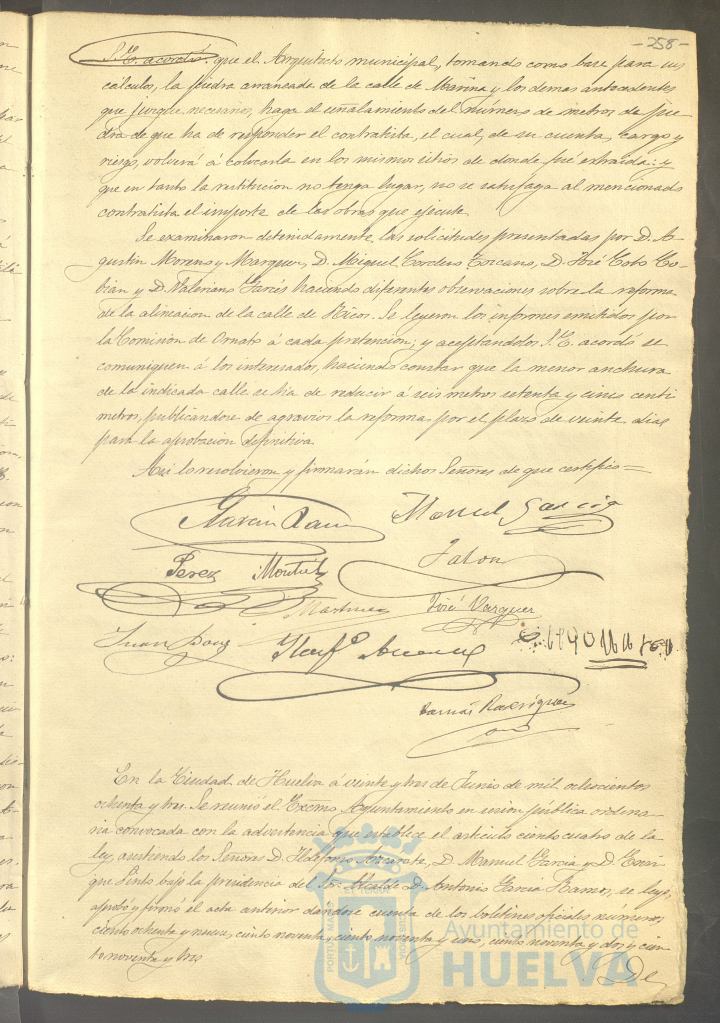 - 258 -
S. E. acordó que el Arquitecto municipal, tomando como base para sus
cálculos, la piedra arrancada de la calle de Marina y los demas antecedentes
que juzgue necesarios, haga el señalamiento del número de metros de pie-
dra de que ha de responder el contratista, el cual, de su cuenta, cargo y
riesgo, volverá á colocarla en los mismos sitios de donde fué extraida: y
que en tanto la restitucion no tenga lugar, no se satisfaga al mencionado
contratista el importe de las obras que ejecute.
Se examinaron detenidamente las solicitudes presentadas por D. A-
gustin Moreno y Marquez, D. Miguel Cordero Toscano, D. José Coto Co-
bian y D. Valeriano Garcés haciendo diferentes observaciones sobre la reforma
de la alineacion de la calle de Ricos. Se leyeron los informes emitidos por
la Comision de Ornato á cada pretencion; y aceptandolos S. E. acordó se
comuniquen á los interesados, haciendo constar que la menor anchura
de la indicada calle se ha de reducir á seis metros setenta y cinco centi
metros, publicandose de agravios la reforma por el plazo de veinte dias
para la aprobacion definitiva.
Asi lo resolvieron y firmarán dichos Señores de que certifico =
Garcia Ramos Manuel Garcia
Perez Montiel Jalon
Martinez José Vazquez
Juan
Ildefº
Tomás Rodriguez
En la Ciudad de Huelva á veinte y tres de Junio de mil ochocientos
ochenta y tres. Se reunió el Excmo Ayuntamiento en sesion pública ordina-
ria convocada con la advertencia que establece el articulo ciento cuatro de la
ley, asistiendo los Señores D. Ildefonso Azcarate, D. Manuel Garcia y D. Enri-
que Pinto bajo la presidencia del Sr. Alcalde D. Antonio Garcia Ramos, se leyó,
aprobó y firmó el acta anterior dandose cuenta de los boletines oficiales números
ciento ochenta y nueve, ciento noventa, ciento noventa y uno, ciento noventa y dos y cien
to noventa y tres
De
Ayuntamiento de
HUELVA